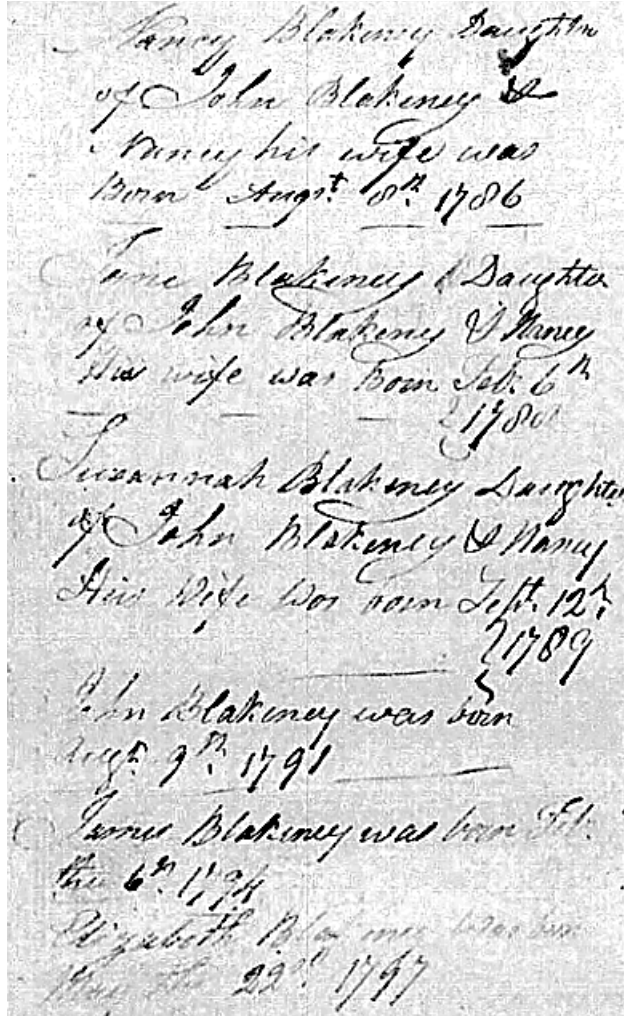 Nancy Blakeney Daughter
of John Blakeney &
Nancy his wife was
Born Augst. 8th. 1786
Jane Blakeney Daughter
of John Blakeney & Nancy
His wife was Born Feb. 6th
178
Susannah Blakeney Daughter
of John Blakeney & Nancy
His Wife Was born Sept. 12th.
1789
John Blakeney was born
Augt. 9th. 1791
James Blakeney was born Feb.
the 6th. 1794
Elizabeth Blakeney was born
May the 22nd 1797